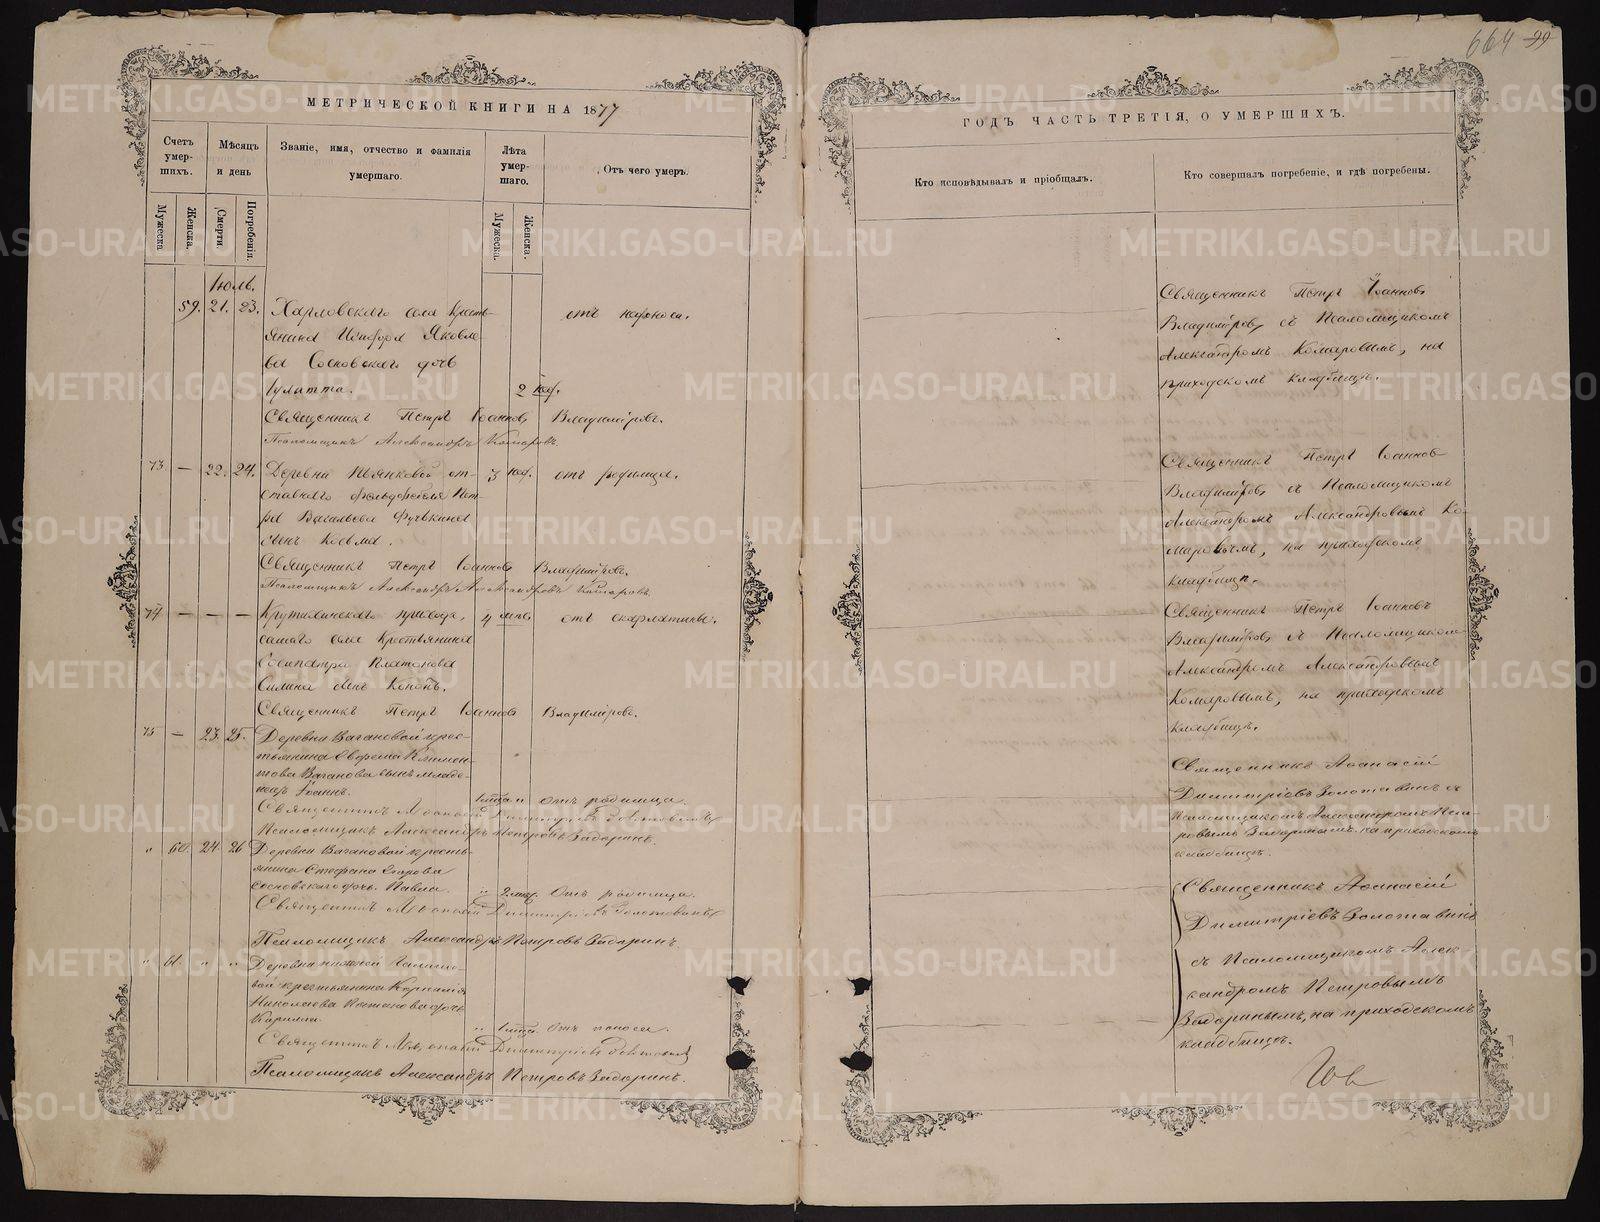 664 99
МЕТРИЧЕСКОЙ КНИГИ НА 1877
Счетъ умер-шихъ.
Мѣсяцъ и день
Званіе, имя, отчество и фамилія умершаго.
Лѣта умер-шаго.
Отъ чего умеръ.
Мужеска.
Женска.
Смерти.
Погребенія.
Мужеска.
Женска.
Іюль.
59. 21. 23. Харловскаго села кресть-
янина Яковле-
ва Сосновскаго дочь
Іулитта. 2 нед. отъ поноса.
Священникъ Петръ Іоанновъ Владиміровъ.
Псаломщикъ Александръ Комаровъ.
73. — 22. 24. Деревни от- 3 нед. отъ родимца.
ставнаго фельдфебеля Пет-
ра Васильева
сынъ Косьма.
Священникъ Петръ Іоанновъ Владиміровъ.
Псаломщикъ Александръ Александровъ Комаровъ.
74 — — — Крутихинскаго прихода, 4 отъ скарлатины.
самаго села крестьянина
Сосипатра Платонова
сынъ Кононъ.
Священникъ Петръ Іоанновъ Владиміровъ.
75 — 23. 25. Деревни Вагановой крес-
тьянина Ефрема Климен-
това Ваганова сынъ младе-
нецъ Іоаннъ. отъ родимца
Священникъ Аѳанасій Димитріевъ Золотавинъ
Псаломщикъ Александръ Петровъ Задоринъ.
„ 60. 24 26 Деревни Вагановой кресть-
янина Стефана Егорова
Сосновскаго дочь Павла. „ 2 нед. Отъ родимца.
Священникъ Аѳанасій Димитріевъ Золотавинъ
Псаломщикъ Александръ Петровъ Задоринъ.
„ 61. „ „ Деревни нижней
крестьянина Корнилія
Николаева дочь
„ Отъ поноса.
Священникъ Аѳанасій Димитріевъ Золотавинъ
Псаломщикъ Александръ Петровъ Задоринъ.
ГОДЪ ЧАСТЬ ТРЕТІЯ, О УМЕРШИХЪ.
Кто исповѣдывалъ и пріобщалъ.
Кто совершалъ погребеніе, и гдѣ погребены.
Священникъ Петръ Іоанновъ
Владиміровъ, съ Псаломщикомъ
Александромъ Комаровымъ, на
приходскомъ кладбищѣ.
Священникъ Петръ Іоанновъ
Владиміровъ съ Псаломщикомъ
Александромъ Александровымъ Ко-
маровымъ, на приходскомъ
кладбищѣ.
Священникъ Петръ Іоанновъ
Владиміровъ съ Псаломщикомъ
Александромъ Александровымъ
Комаровымъ, на приходскомъ
кладбищѣ.
Священникъ Аѳанасій
Димитріевъ Золотавинъ съ
Псаломщикомъ Александромъ Пет-
ровымъ Задоринымъ на приходскомъ
кладбищѣ.
Священникъ Аѳанасій
Димитріевъ Золотавинъ
съ Псаломщикомъ Алек-
сандромъ Петровымъ
Задоринымъ, на приходскомъ
кладбищѣ.
METRIKI.GASO-URAL.RU